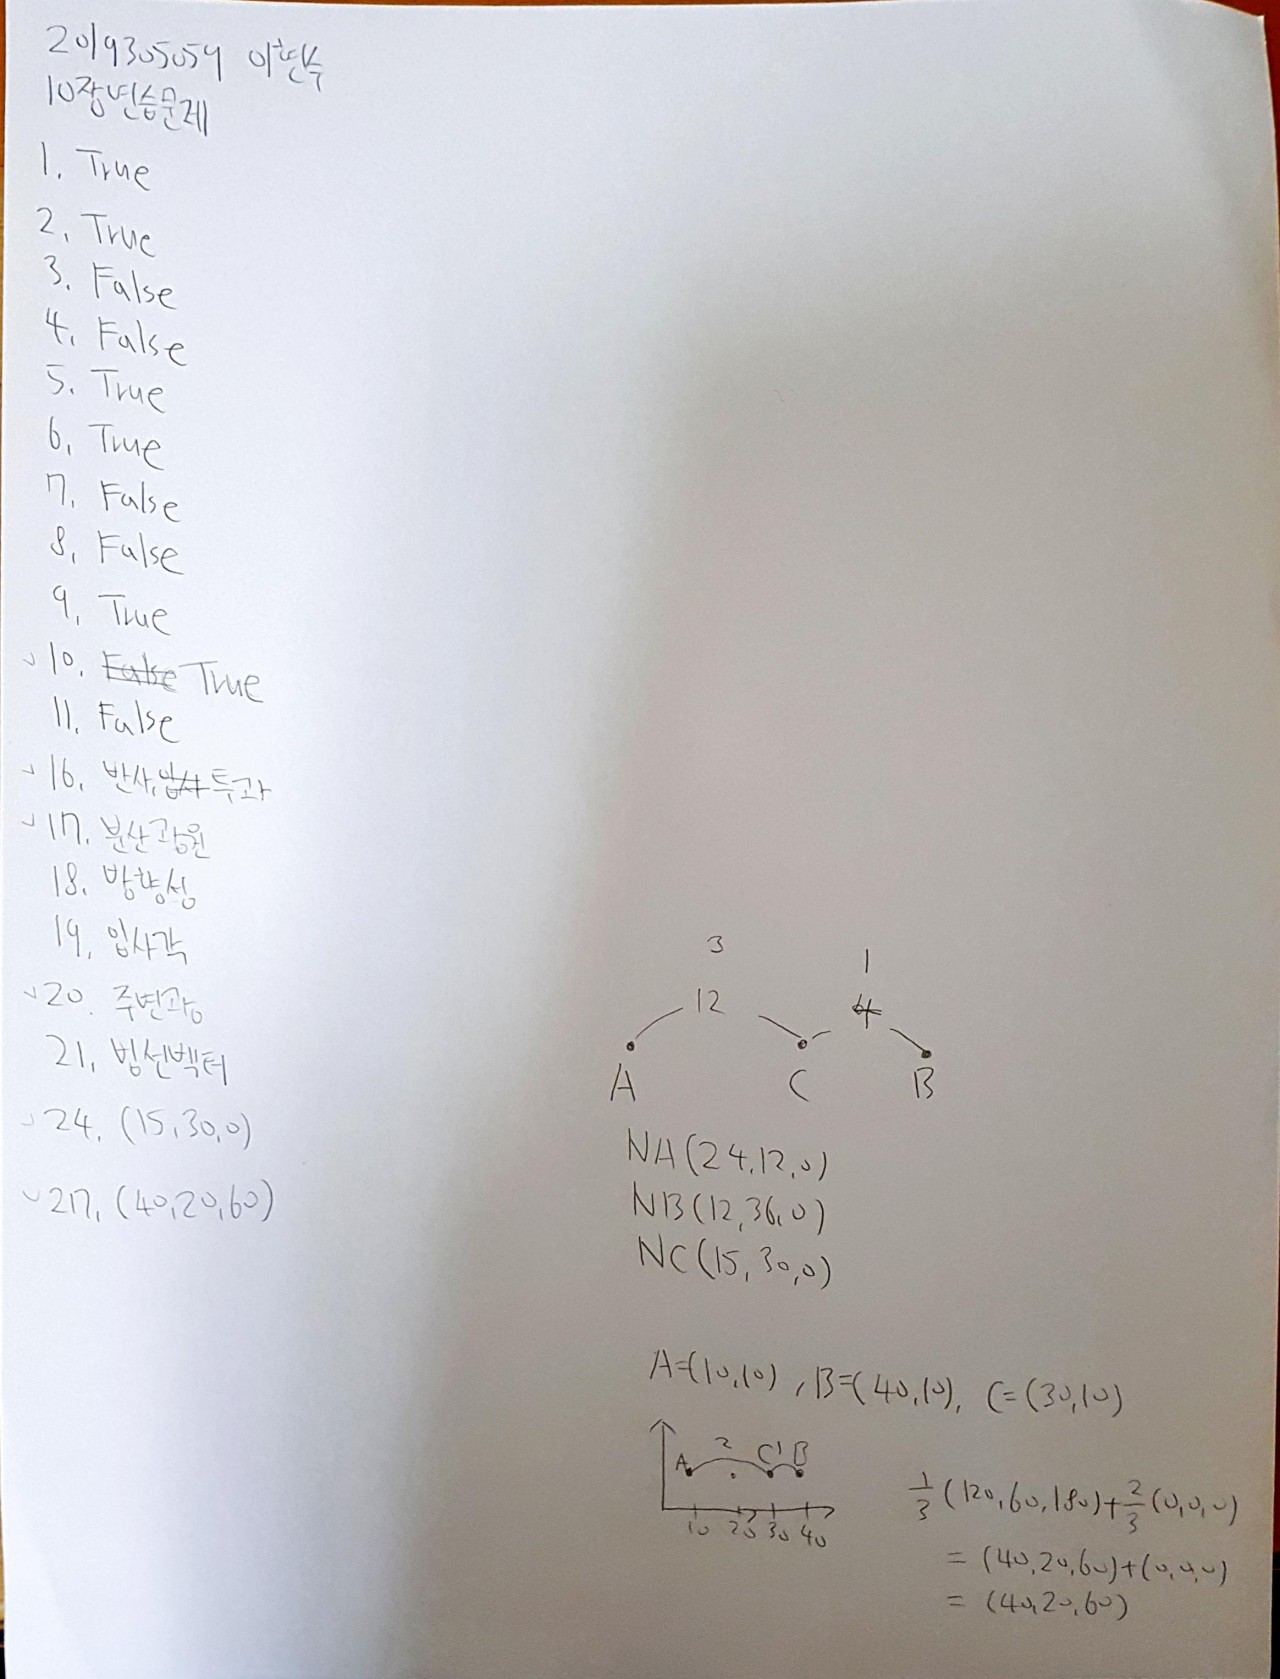 2019305059 이현수
10장 연습문제
1. True
2. True
3. False
4. False
5. True
6. True
7. False
8. False
9. True
10. False True
11. False
16. 반사, 입사 투과
17. 분산광원
18. 방향성
19. 입사각
20. 주변광
21. 법선벡터
24. (15,30,0)
27. (40,20,60)
3 1
12 4
A C B
NA(24,12,0)
NB(12,36,0)
NC(15,30,0)
A=(10,10), B=(40,10), C=(30,10)
A 2 C 1 B
10 20 30 40
1/3 (120,60,180)+2/3(0,0,0)
= (40,20,60)+(0,0,0)
= (40,20,60)